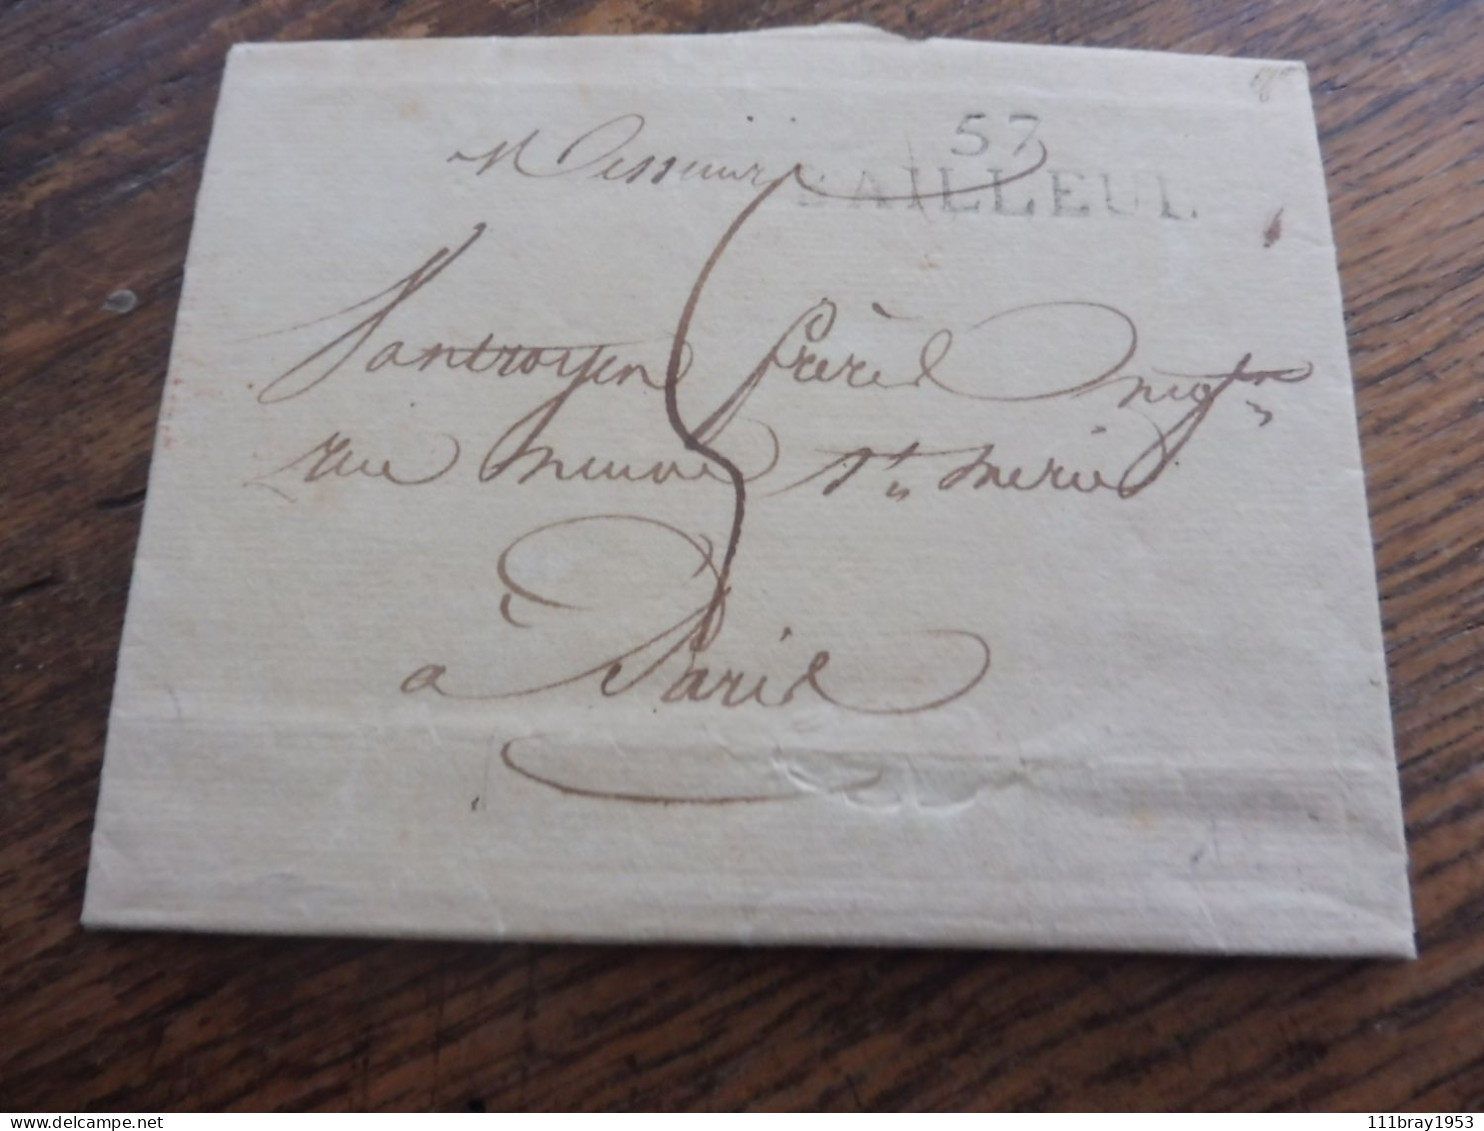 57
BAILLEUL
Messieurs
Vantroyen frères neg.ts
rue neuve St. merie
5
a Paris
delcampe.net
111bray1953